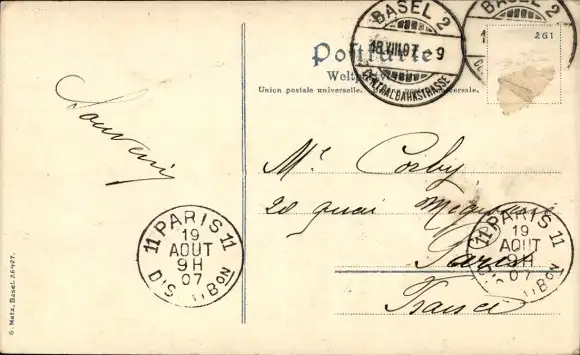 BASEL 2
18.VIII.07. 9
CENTRALBAHNSTRASSE
BASEL 2
261
Postkarte
Union postale universelle.
Souvenir
Mr Corby
20 quai
Paris
France
11 PARIS 11
19
AOUT
9H
07
DISTRIBON
11 PARIS 11
19
AOUT
9H
07
G. Metz, Basel. 26427.